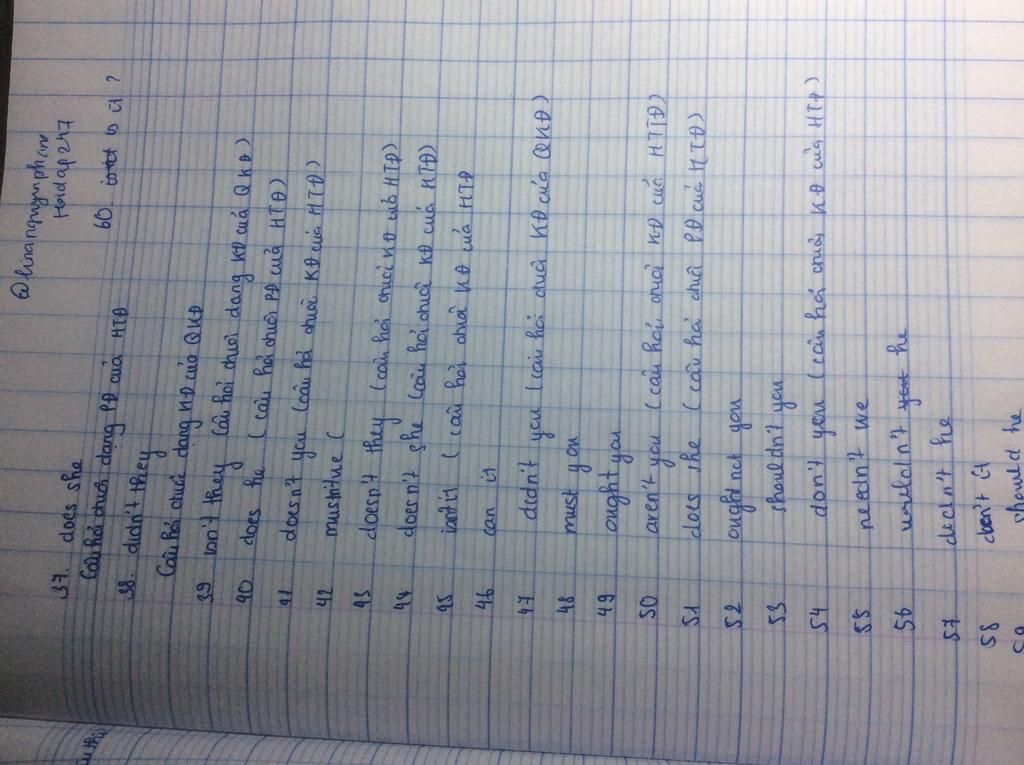 @linangnguynpham
Hoidap247
37. does she
Câu hỏi đuôi dạng PĐ của HTĐ
60. is it ?
38. didn't they
Câu hỏi đuôi dạng KĐ của QKĐ
39 isn't they (câu hỏi đuôi dạng KĐ của QKĐ)
40 does he (câu hỏi đuôi PĐ của HTĐ)
41 doesn't you (câu hỏi đuôi KĐ của HTĐ)
42 mustn't we (
43 doesn't they (câu hỏi đuôi KĐ của HTĐ)
44 doesn't she (câu hỏi đuôi KĐ của HTĐ)
45 isn't it (câu hỏi đuôi KĐ của HTĐ
46 can it
47 didn't you (câu hỏi đuôi KĐ của QKĐ)
48 must you
49 ought you
50 aren't you (câu hỏi đuôi KĐ của HTTĐ)
51 does she (câu hỏi đuôi PĐ của HTĐ)
52 ought not you
53 shouldn't you
54 don't you (câu hỏi đuôi KĐ của HTĐ)
55 needn't we
56 wouldn't he
57 didn't he
58 doesn't it
59 should he